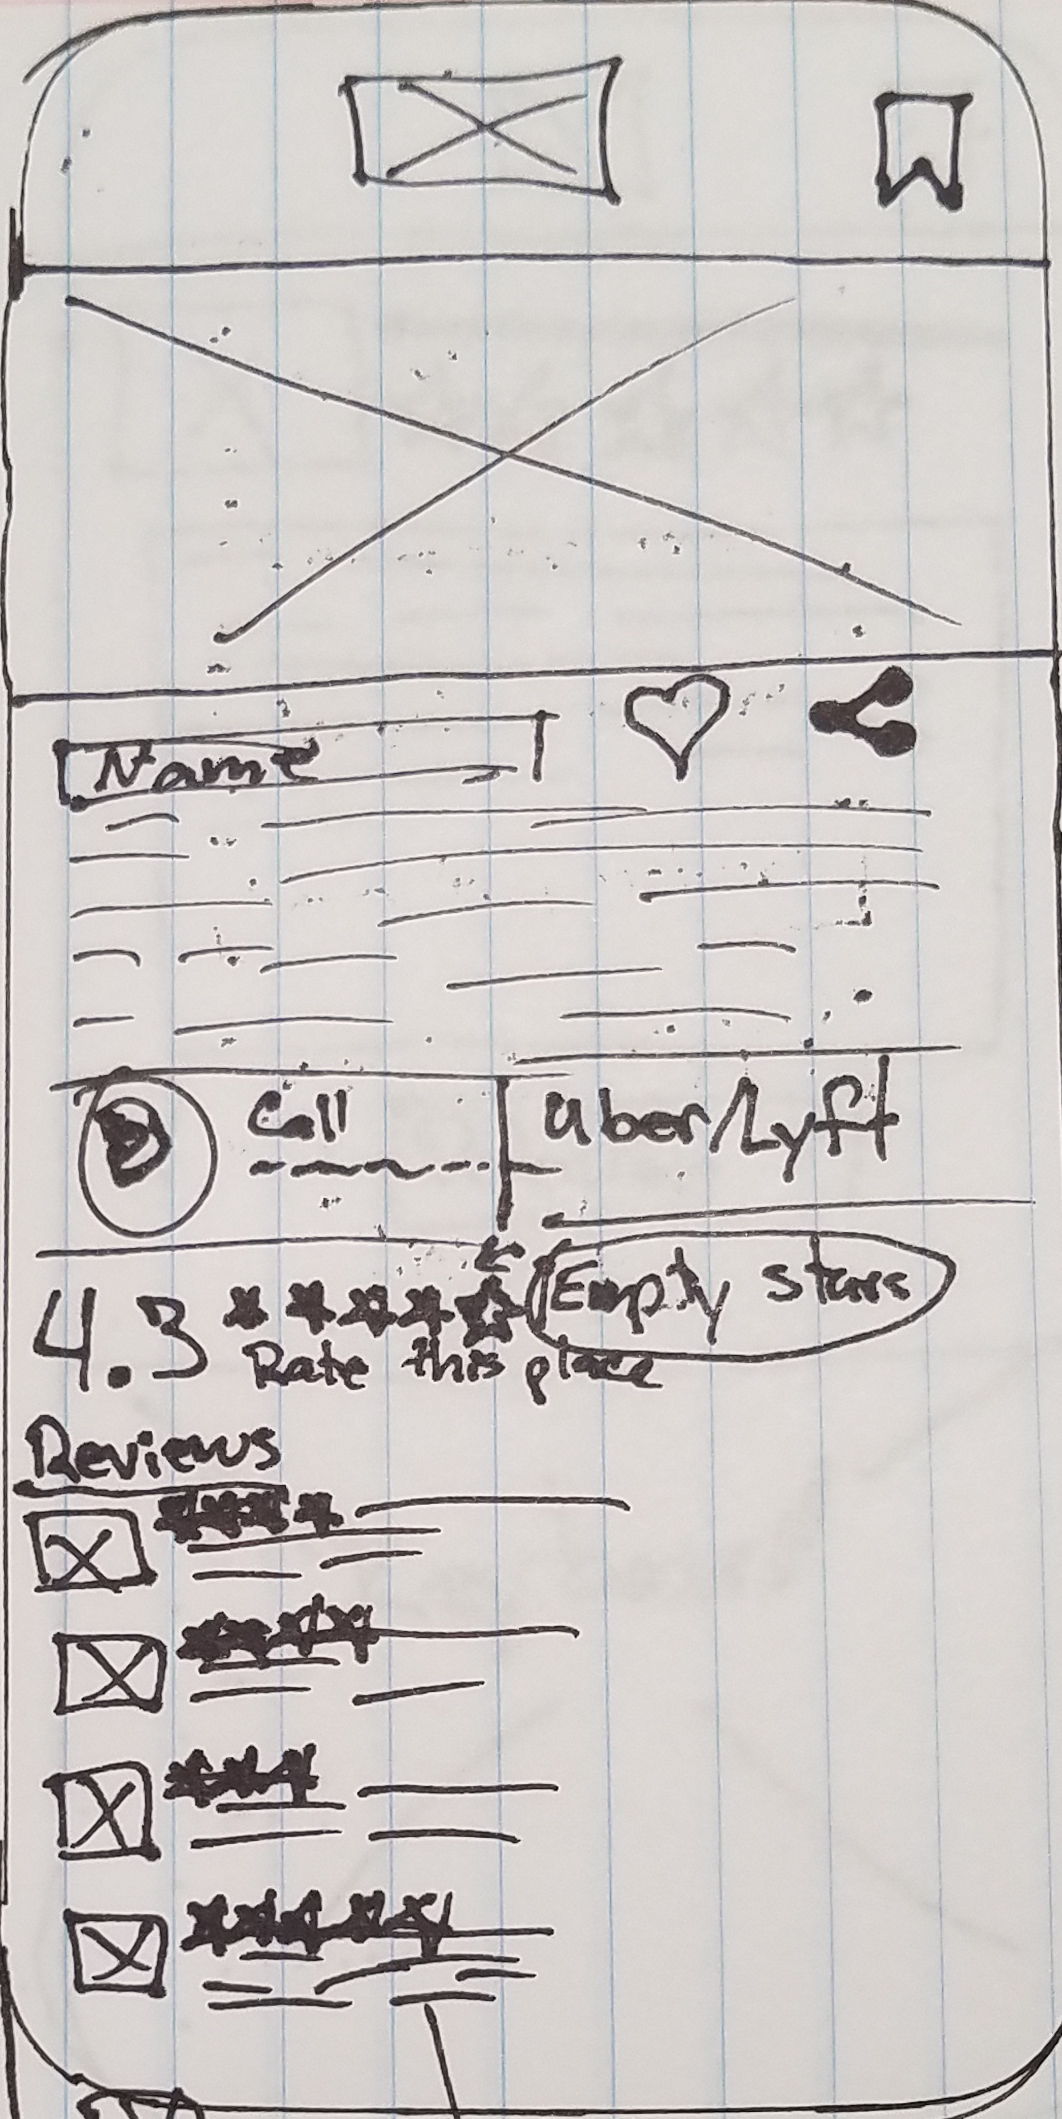 Name
Call
Uber/Lyft
Empty stars
4.3
Rate this place
Reviews